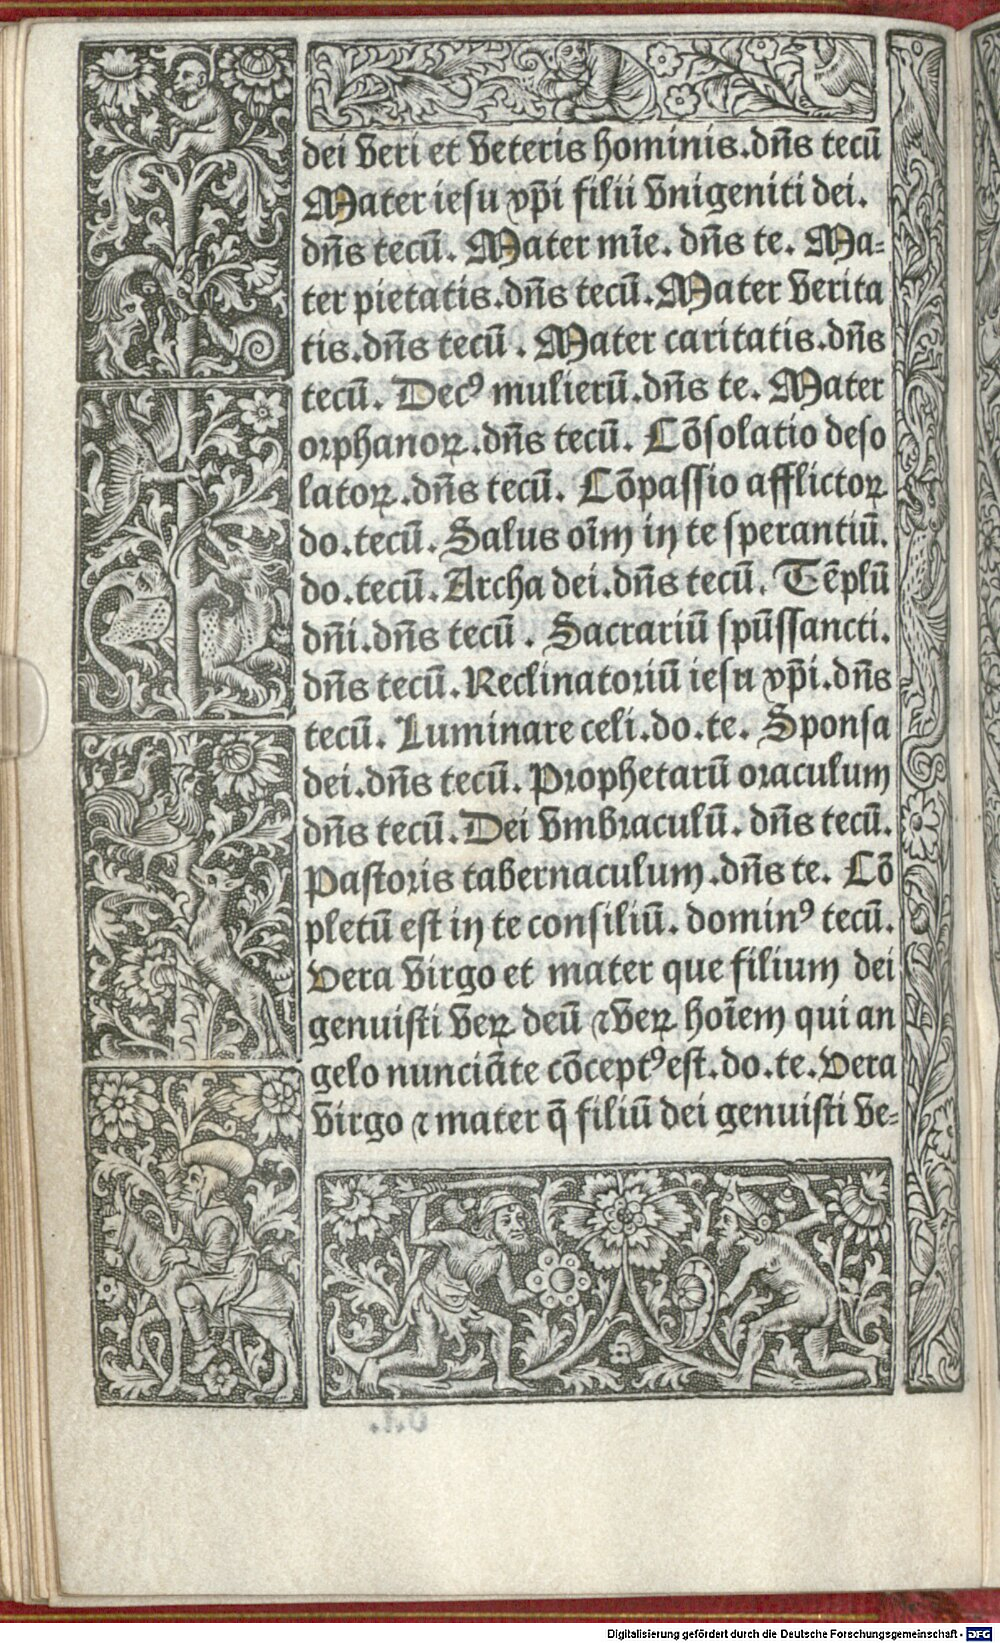 dei veri et veteris hominis.dn̄s tecū
Mater iesu xp̄i filii vnigeniti dei.
dn̄s tecū. Mater mīe. dn̄s te. Ma-
ter pietatis.dn̄s tecū.Mater verita
tis.dn̄s tecū. Mater caritatis.dn̄s
tecū. Decꝰ mulierū.dn̄s te. Mater
orphanoꝝ.dn̄s tecū. Cōsolatio deso
latoꝝ.dn̄s tecū. Cōpassio afflictoꝝ
do.tecū.Salus oīm in te sperantiū.
do.tecū.Archa dei.dn̄s tecū. Tēplū
dn̄i.dn̄s tecū. Sacrariū spūssancti.
dn̄s tecū.Reclinatoriū iesu xp̄i.dn̄s
tecū. Luminare celi.do.te. Sponsa
dei.dn̄s tecū.Prophetarū oraculum
dn̄s tecū.Dei vmbraculū.dn̄s tecū.
Pastoris tabernaculum.dn̄s te. Cō
pletū est in te consiliū. dominꝰ tecū.
Vera virgo et mater que filium dei
genuisti veꝝ deū ⁊veꝝ hoīem qui an
gelo nunciāte cōceptꝰest.do.te.Vera
virgo ⁊ mater q̄ filiū dei genuisti ve-
Digitalisierung gefördert durch die Deutsche Forschungsgemeinschaft - DFG